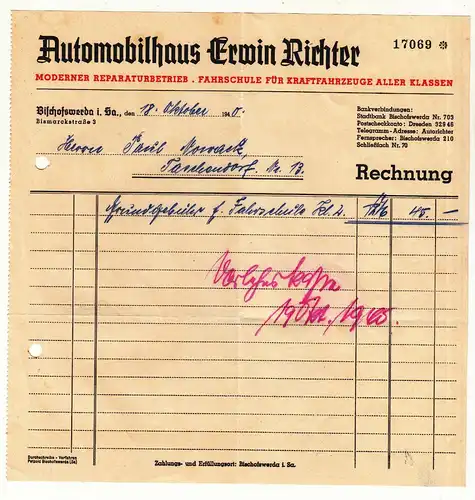 Automobilhaus Erwin Richter
17069 ✽
MODERNER REPARATURBETRIEB · FAHRSCHULE FÜR KRAFTFAHRZEUGE ALLER KLASSEN
Bischofswerda i. Sa., den 18. Oktober 1940.
Bismarckstraße 3
Bankverbindungen:
Stadtbank Bischofswerda Nr. 703
Postscheckkonto: Dresden 32946
Telegramm-Adresse: Autorichter
Fernsprecher: Bischofswerda 210
Schließfach Nr. 79
Herrn Paul
Taschendorf. Nr. 13.
Rechnung
Grundgebühr f. Fahrschule Kl. 2. RM 45.—
19 Okt. 19
Durchschreibe-Verfahren
Bischofswerda (Sa)
Zahlungs- und Erfüllungsort: Bischofswerda i. Sa.